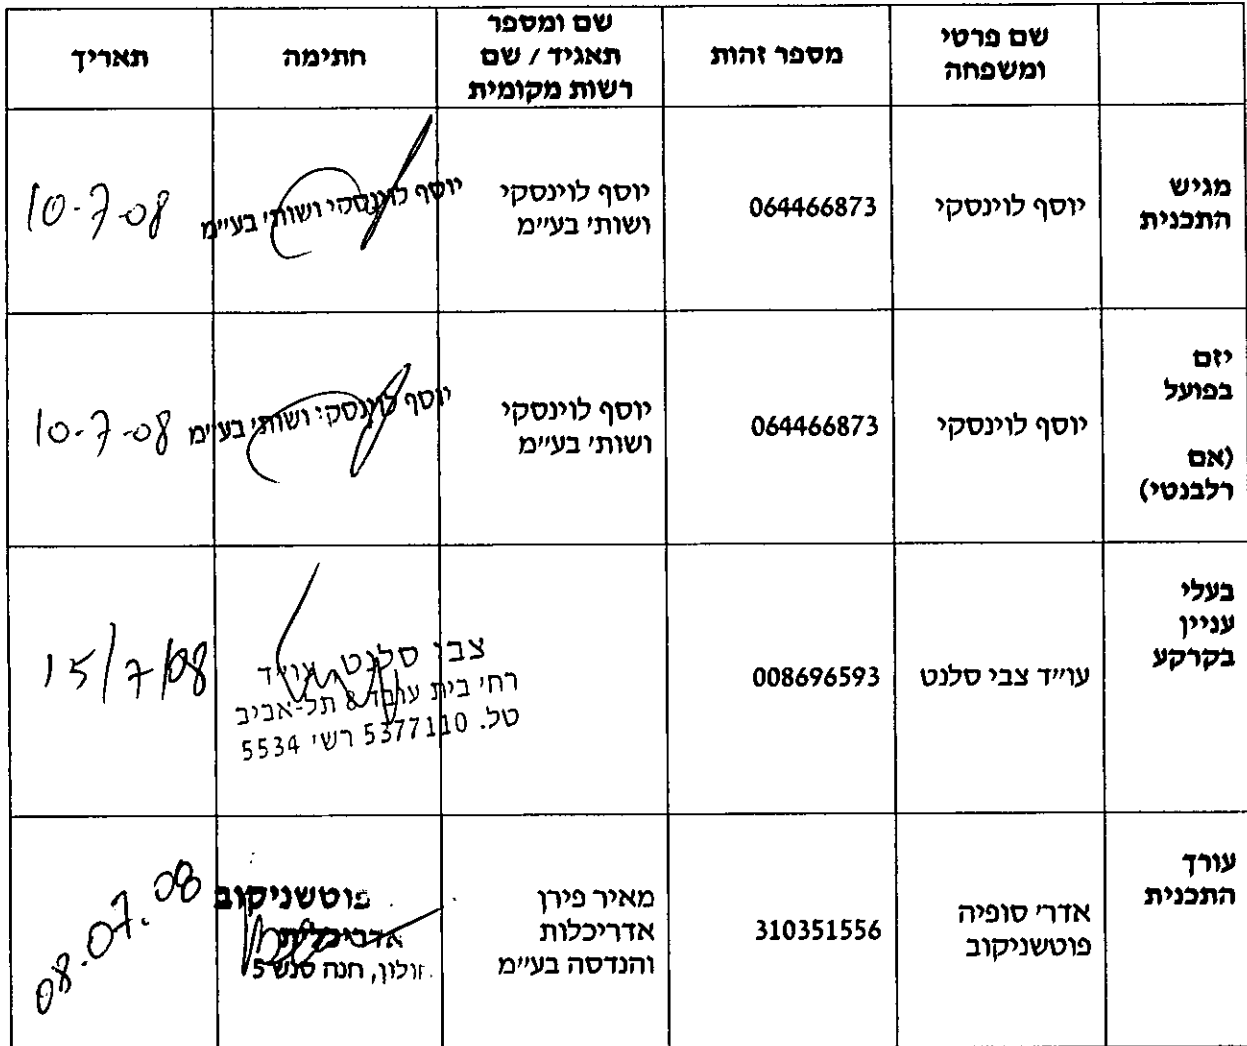 שם פרטי
ומשפחה
מספר זהות
שם ומספר
תאגיד / שם
רשות מקומית
חתימה
תאריך
מגיש
התכנית
יוסף לוינסקי
064466873
יוסף לוינסקי
ושות׳ בע״מ
יוסף לוינסקי ושות׳ בע״מ
10-7-08
יזם
בפועל
(אם
רלבנטי)
יוסף לוינסקי
064466873
יוסף לוינסקי
ושות׳ בע״מ
יוסף לוינסקי ושות׳ בע״מ
10-7-08
בעלי
עניין
בקרקע
עו״ד צבי סלנט
008696593
צבי סלנט, עו״ד
רח׳ בית עובד 8 תל-אביב
טל. 5377110 רש׳ 5534
15/7/08
עורך
התכנית
אדר׳ סופיה
פוטשניקוב
310351556
מאיר פירן
אדריכלות
והנדסה בע״מ
פוטשניקוב
אדריכלית
חולון, חנה סנש 5
08.07.08